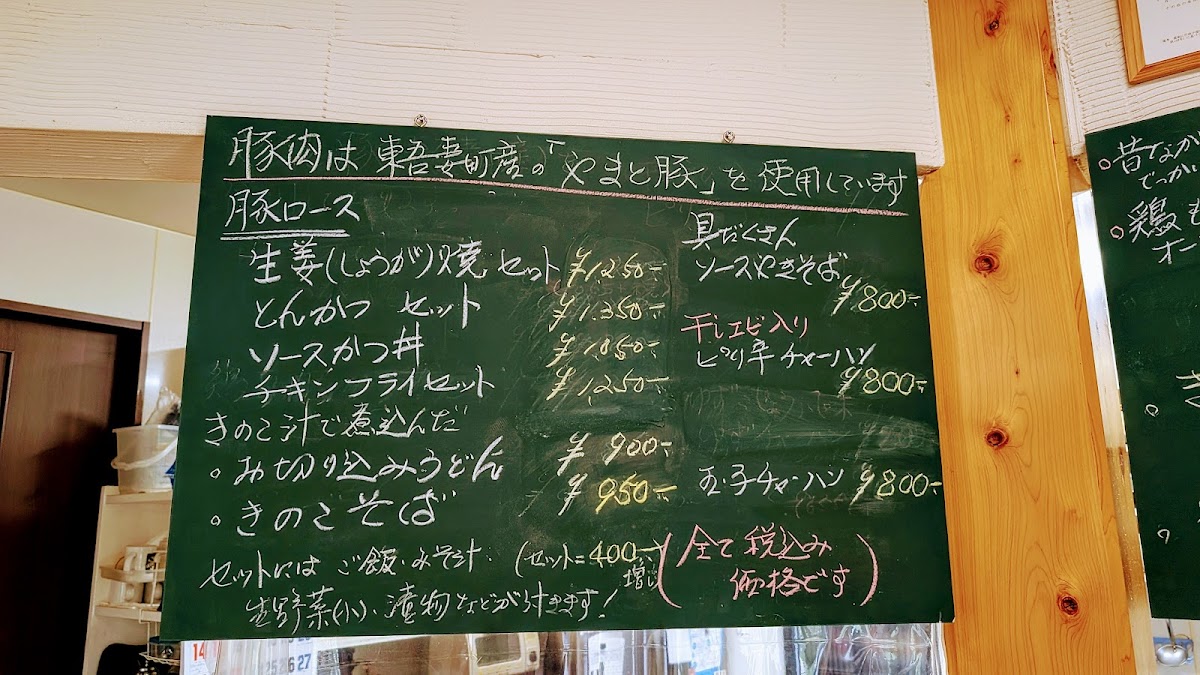 豚肉は 東吾妻町産の「やまと豚」を使用しています
豚ロース
生姜(しょうが)焼 セット ¥1,250-
とんかつ セット ¥1,350-
ソースかつ丼 ¥1,050-
チキンフライセット ¥1,250-
きのこ汁で煮込んだ
。お切り込みうどん ¥900-
。きのこそば ¥950-
セットには ご飯・みそ汁・
生野菜(小)、漬物などが付きます!
(セット=400-増し)
具だくさん
ソースやきそば
¥800-
干しエビ入り
ピリ辛チャーハン
¥800-
玉子チャーハン ¥800-
(全て税込み
価格です)
。昔なが
でっかい
。鶏も
オー
14
25 26 27